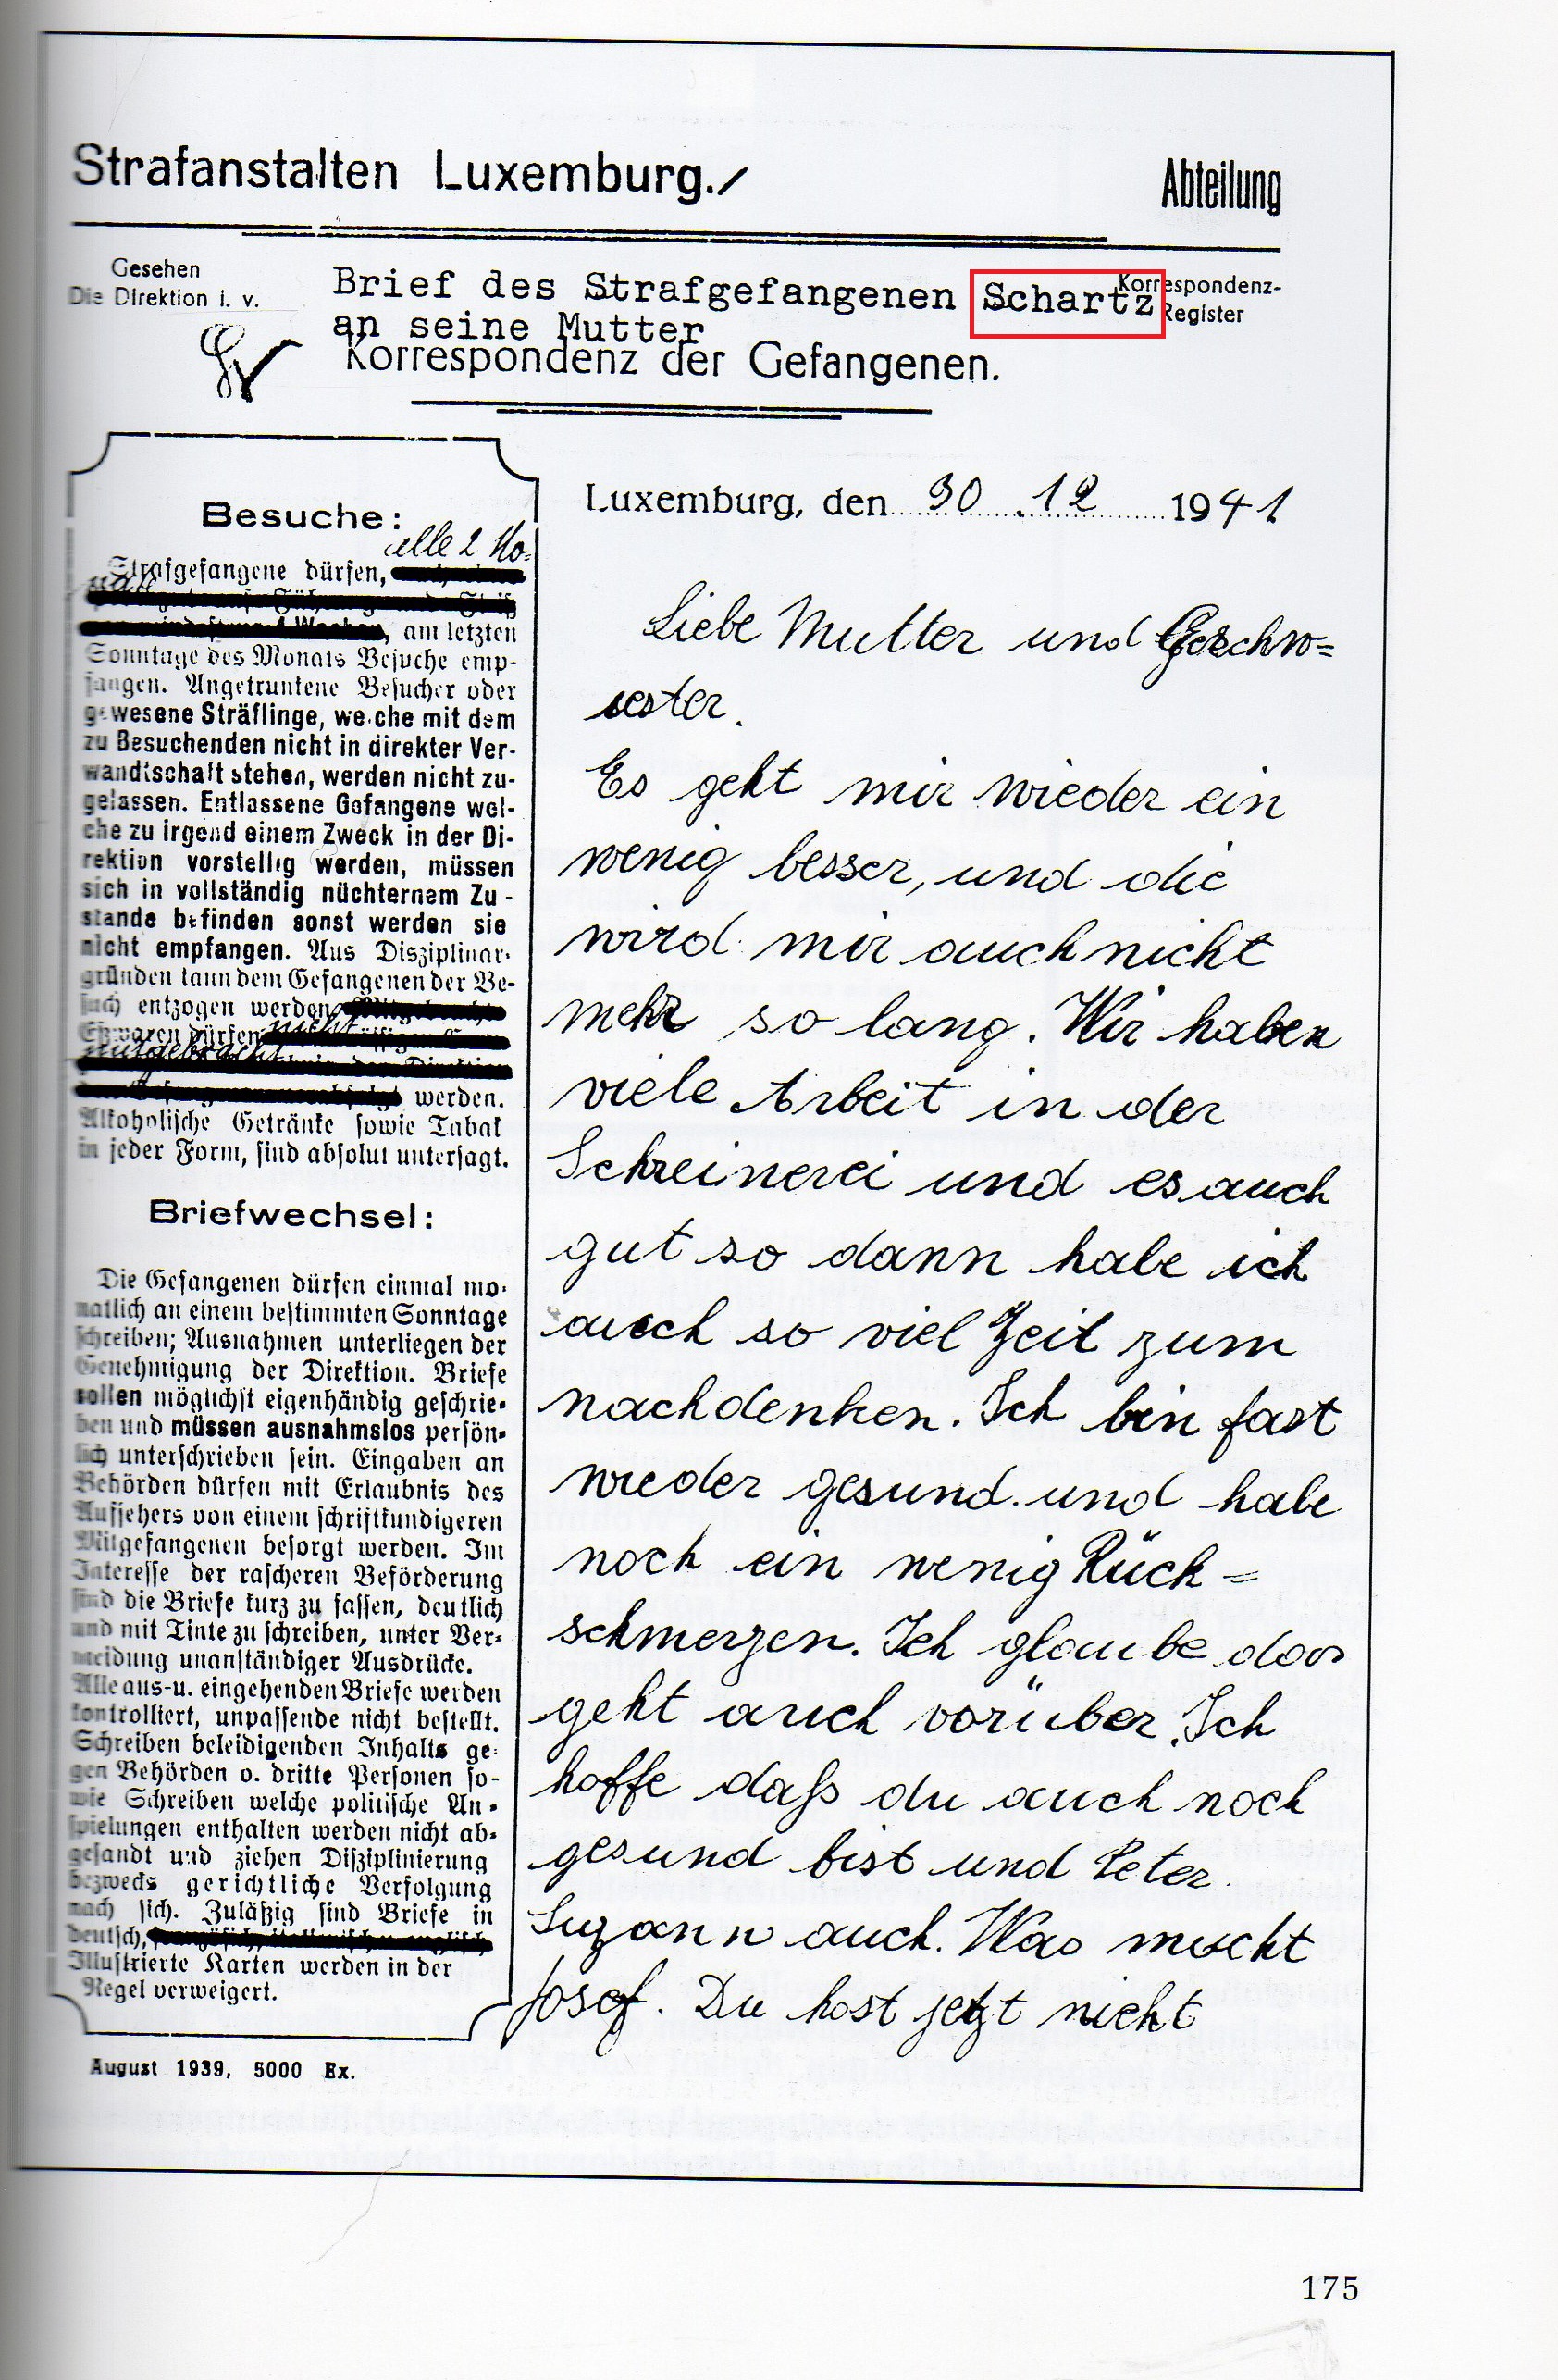 Strafanstalten Luxemburg./
Abteilung
Gesehen
Die Direktion i. v.
Brief des Strafgefangenen Schartz
an seine Mutter
Korrespondenz-
Register
Korrespondenz der Gefangenen.
Besuche:
alle 2 Mo=
Strafgefangene dürfen,
nate
, am letzten
Sonntage des Monats Besuche emp-
fangen. Angetrunkene Besucher oder
gewesene Sträflinge, welche mit dem
zu Besuchenden nicht in direkter Ver-
wandtschaft stehen, werden nicht zu-
gelassen. Entlassene Gefangene wel-
che zu irgend einem Zweck in der Di-
rektion vorstellig werden, müssen
sich in vollständig nüchternem Zu-
stande befinden sonst werden sie
nicht empfangen. Aus Disziplinar-
gründen kann dem Gefangenen der Be-
such entzogen werden.
Eßwaren dürfen nicht
mitgebracht
werden.
Alkoholische Getränke sowie Tabak
in jeder Form, sind absolut untersagt.
Briefwechsel:
Die Gefangenen dürfen einmal mo-
natlich an einem bestimmten Sonntage
schreiben; Ausnahmen unterliegen der
Genehmigung der Direktion. Briefe
sollen möglichst eigenhändig geschrie-
ben und müssen ausnahmslos persön-
lich unterschrieben sein. Eingaben an
Behörden dürfen mit Erlaubnis des
Aufsehers von einem schriftkundigeren
Mitgefangenen besorgt werden. Im
Interesse der rascheren Beförderung
sind die Briefe kurz zu fassen, deutlich
und mit Tinte zu schreiben, unter Ver-
meidung unanständiger Ausdrücke.
Alle aus-u. eingehenden Briefe werden
kontrolliert, unpassende nicht bestellt.
Schreiben beleidigenden Inhalts ge-
gen Behörden o. dritte Personen so-
wie Schreiben welche politische An-
spielungen enthalten werden nicht ab-
gesandt und ziehen Disziplinierung
bezwecks gerichtliche Verfolgung
nach sich. Zuläßig sind Briefe in
deutsch,
Illustrierte Karten werden in der
Regel verweigert.
August 1939, 5000 Ex.
Luxemburg, den 30.12 1941
Liebe Mutter und Geschw=
sester.
Es geht mir wieder ein
wenig besser, und die
wird mir auch nicht
mehr so lang. Wir haben
viele Arbeit in der
Schreinerei und es auch
gut so dann habe ich
auch so viel Zeit zum
nachdenken. Ich bin fast
wieder gesund. und habe
noch ein wenig Rück=
schmerzen. Ich glaube das
geht auch vorüber. Ich
hoffe daß du auch noch
gesund bist und Peter.
Suzann auch. Was mischt
Josef. Du host jetzt nicht
175